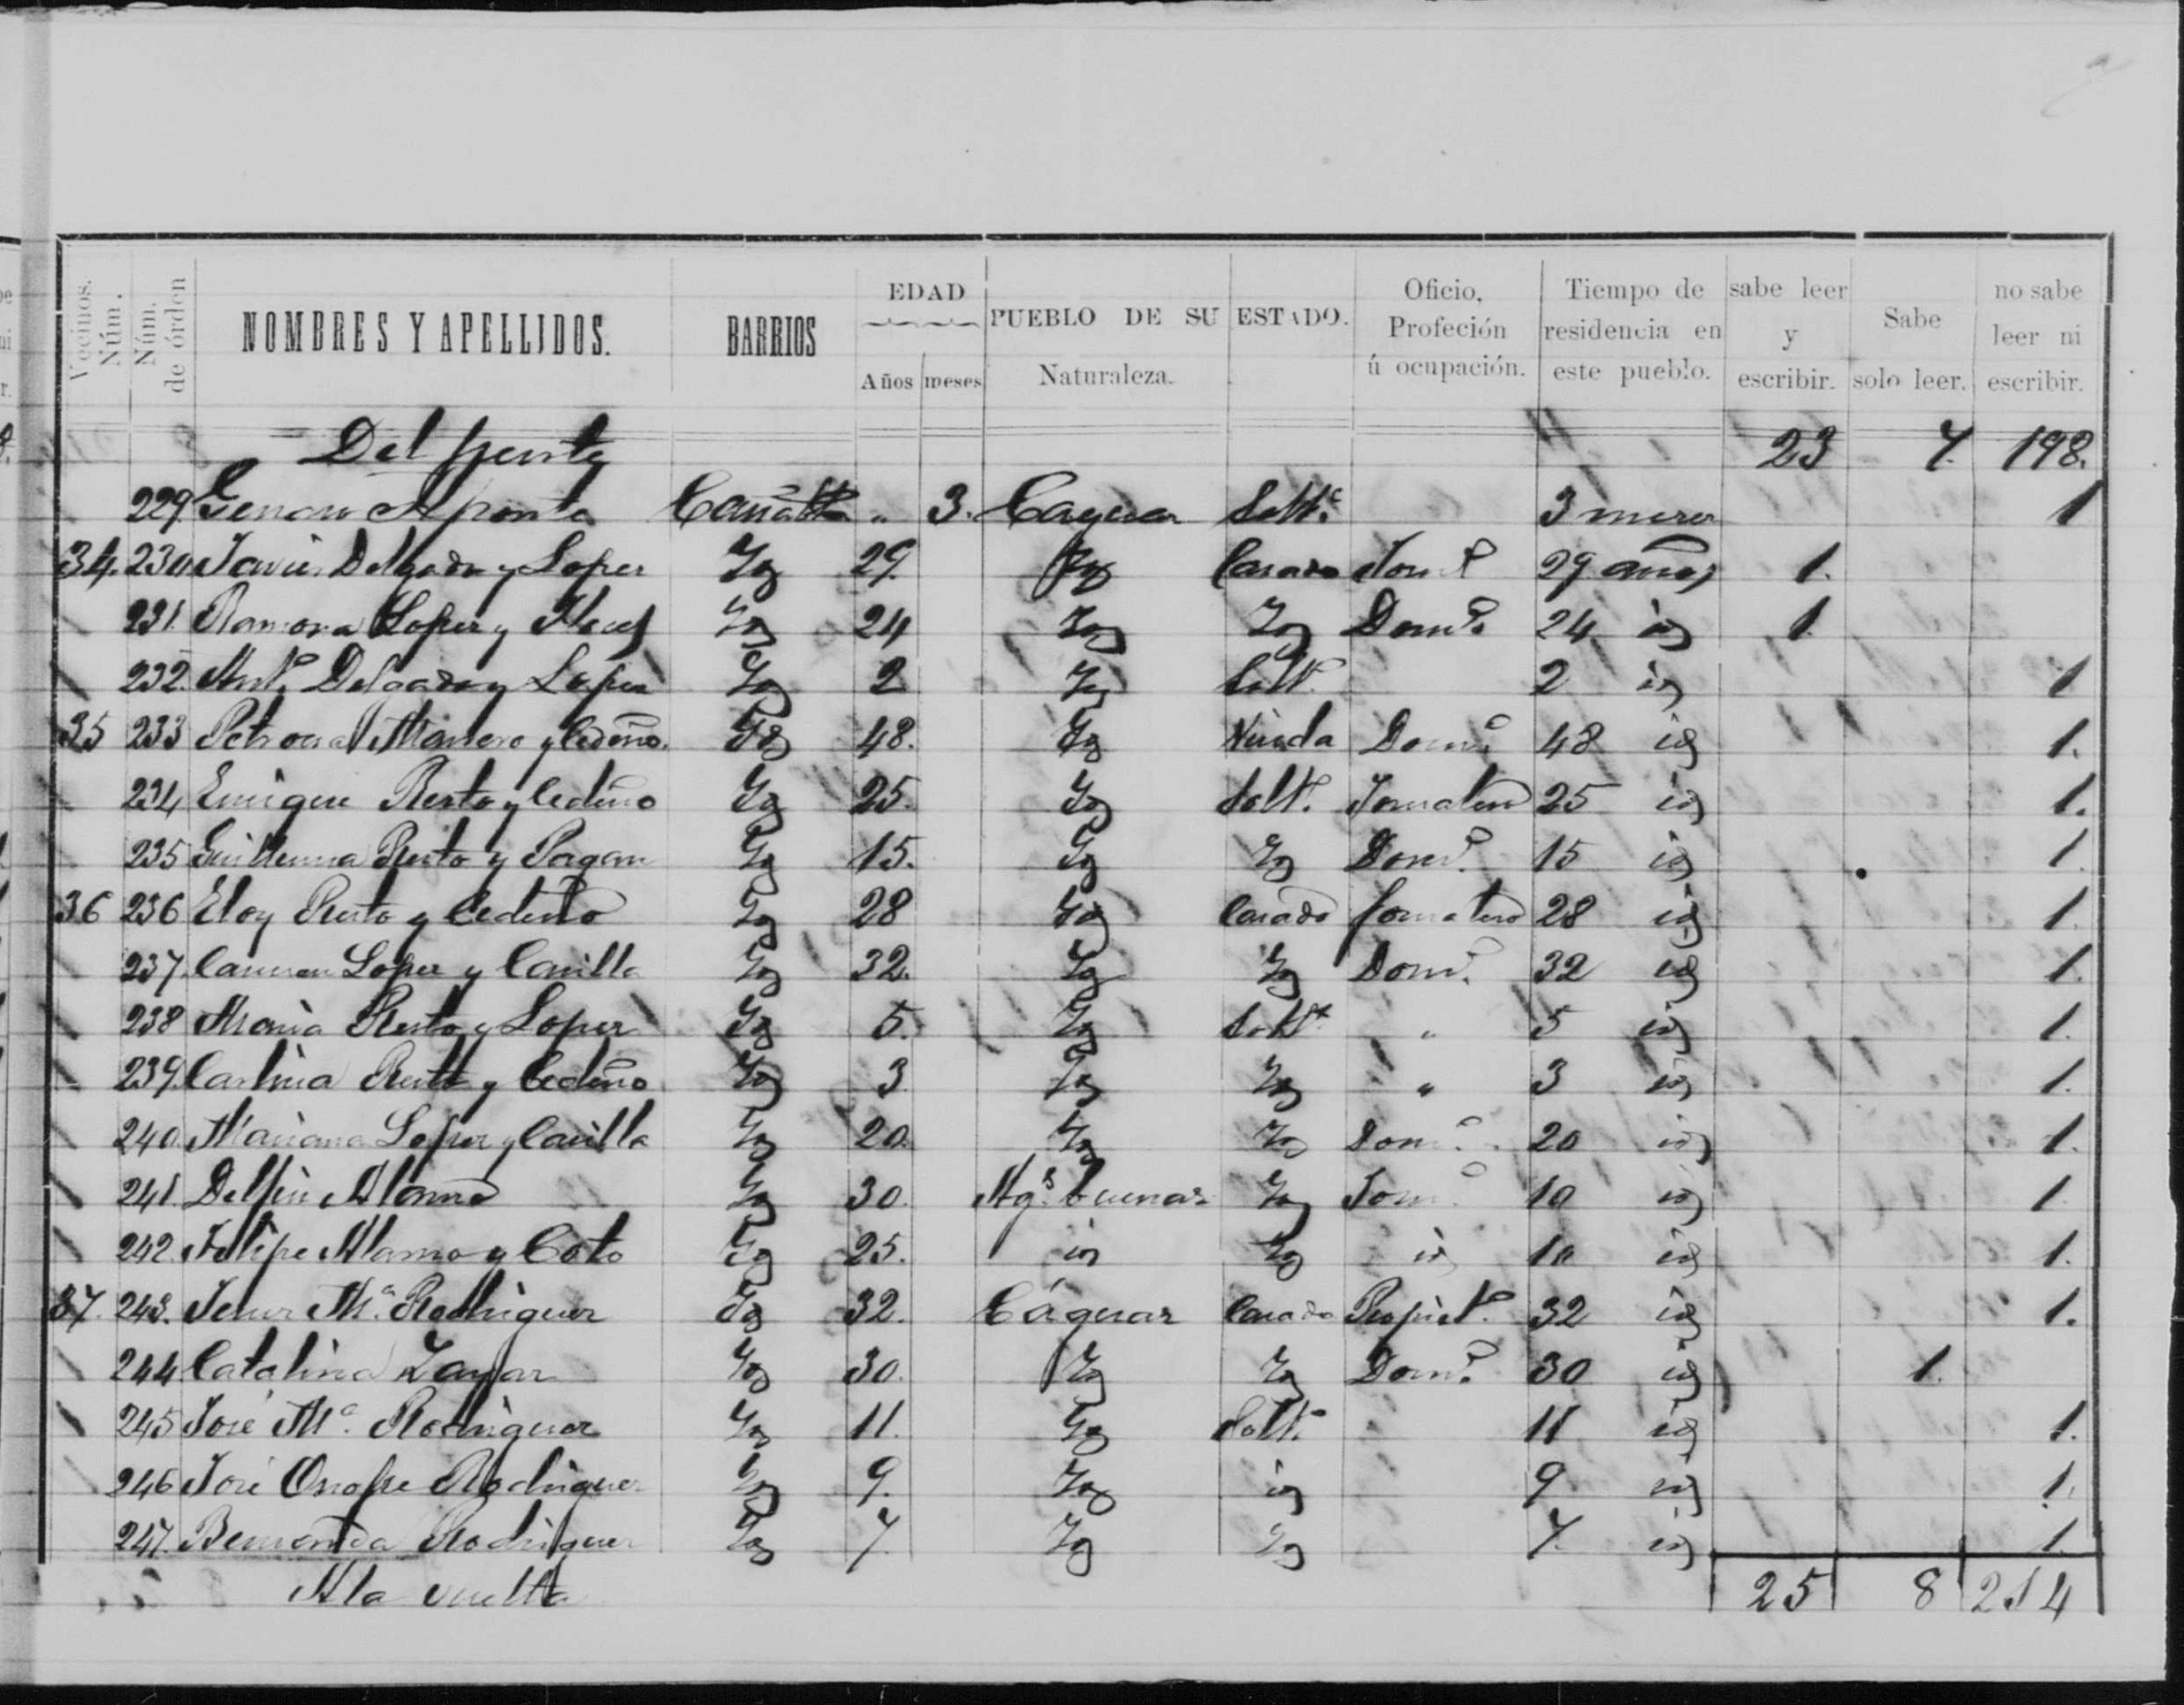 Vecinos. Núm. Núm. de órden NOMBRES Y APELLIDOS. BARRIOS EDAD Años meses PUEBLO DE SU Naturaleza. ESTADO. Oficio, Profeción ú ocupación. Tiempo de residencia en este pueblo. sabe leer y escribir. Sabe solo leer. no sabe leer ni escribir.
Del frente 23 7. 198.
229. Genaro Aponte Cañab.. „ 3. Caguas Solt.º 3 meses 1
34. 230 Javier Delgado y Lopez Yd 29. Yd Casado Jorn.º 29 años 1.
231. Ramona Lopez y Yd 24 Yd Yd Dom.ª 24 id 1.
232. Ant.º Delgado y Lopez Yd 2 Yd Solt.º 2 id 1
35 233 Petrona Montero y Cedeño. Yd 48. Yd Viuda Dom.ª 48 id 1.
234 Enrique Resto y Cedeño Yd 25. Yd Solt.º Jornalero 25 id 1.
235 Guillerma Resto y Pagan Yd 15. Yd Yd Dom.ª 15 id 1.
36 236 Eloy Resto y Cedeño Yd 28 Yd Casado Jornalero 28 id 1.
237. Carmen Lopez y Carrillo Yd 32. Yd Yd Dom.ª 32 id 1.
238 Maria Resto y Lopez Yd 5. Yd Solt.ª „ 5 id 1.
239. Resto y Cedeño Yd 3 Yd Yd „ 3 id 1.
240. Mariana Lopez y Carrillo Yd 20. Yd Yd Dom.ª 20 id 1.
241. Delfin Alamo Yd 30. Ag.s buenas Yd Jorn.º 10 id 1
242. Felipe Alamo y Coto Yd 25. id Yd id 10 id 1.
37. 243. Jesus M.ª Rodriguez Yd 32. Cáguas Casado Propiet.º 32 id 1.
244 Catalina Zayas Yd 30. Yd Yd Dom.ª 30 id 1.
245 José M.ª Rodriguez Yd 11. Yd Solt.º 11 id 1.
246 José Onofre Rodriguez Yd 9. Yd id 9 id 1.
247. Rodriguez Yd 7. Yd Yd 7. id 1.
A la vuelta 25 8 214